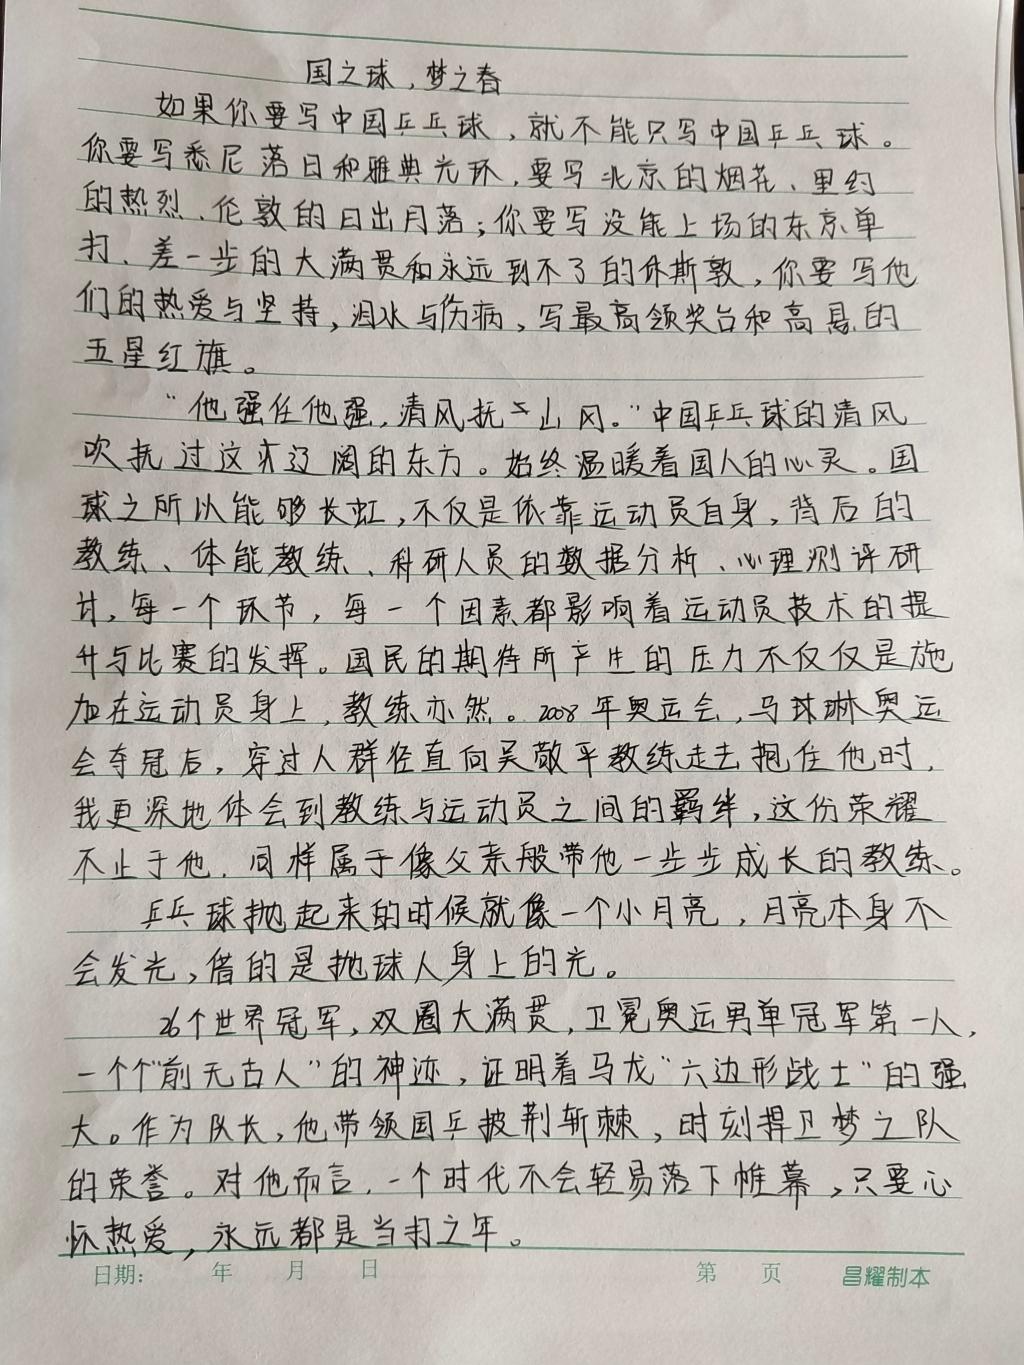 国之球，梦之春
如果你要写中国乒乓球，就不能只写中国乒乓球。
你要写悉尼落日和雅典光环，要写北京的烟花、里约
的热烈、伦敦的日出月落；你要写没能上场的东京单
打、差一步的大满贯和永远到不了的休斯敦，你要写他
们的热爱与坚持，泪水与伤病，写最高领奖台和高悬的
五星红旗。
“他强任他强，清风抚山冈。”中国乒乓球的清风
吹抚过这片辽阔的东方。始终温暖着国人的心灵。国
球之所以能够长虹，不仅是依靠运动员自身，背后的
教练、体能教练、科研人员的数据分析、心理测评研
讨，每一个环节，每一个因素都影响着运动员技术的提
升与比赛的发挥。国民的期待所产生的压力不仅仅是施
加在运动员身上，教练亦然。2008年奥运会，马琳奥运
会夺冠后，穿过人群径直向吴敬平教练走去抱住他时，
我更深地体会到教练与运动员之间的羁绊，这份荣耀
不止于他，同样属于像父亲般带他一步步成长的教练。
乒乓球抛起来的时候就像一个小月亮，月亮本身不
会发光，借的是抛球人身上的光。
26个世界冠军，双圈大满贯，卫冕奥运男单冠军第一人，
一个个“前无古人”的神迹，证明着马龙“六边形战士”的强
大。作为队长，他带领国乒披荆斩棘，时刻捍卫梦之队
的荣誉。对他而言，一个时代不会轻易落下帷幕，只要心
怀热爱，永远都是当打之年。
日期： 年 月 日 第 页 昌耀制本